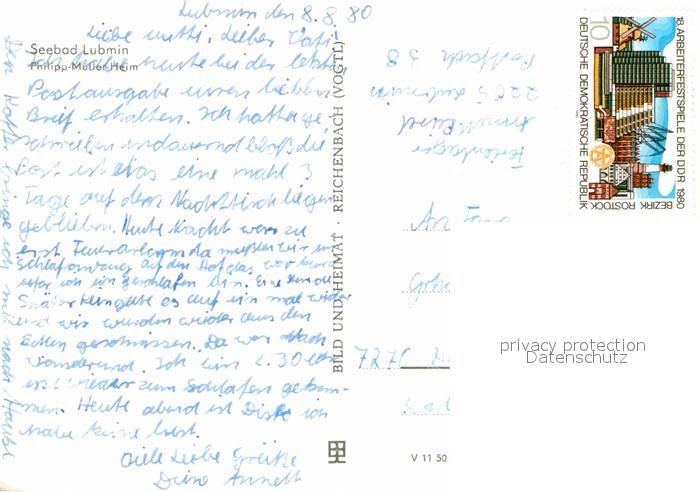 Lubmin den 8.8.80
Liebe Mutti, lieber Vati
heute bei der letzten
Postausgabe euren lieben
Brief erhalten. Ich hatte ge-
schrieben und die
Post ist etwas eine mahl 3
Tage auf dem Nachttisch liegen
geblieben. Heute Nacht war zu
erst Feueralarm da mußten wir im
Schlafanzug auf den Hof das war kurz
ich ein geschlafen bin. Eine
Später klingelte es auf ein mal wieder
und wir wurden wieder aus den
Betten geschmissen. Da war Nach
wanderung. Ich bin 2.30 Uhr
erst wieder zum Schlafen gekom-
men. Heute abend ist Disko ich
habe keine Lust.
Viele Liebe Grüße
Deine Annett
Den Koffer bringe ich mit nach Hause
Seebad Lubmin
Philipp-Müller-Heim
BILD UND HEIMAT · REICHENBACH (VOGTL)
V 11 50
Ferienlager
Annett
2205 Lubmin
Postfach 38
An Fam
7270
10
18. ARBEITERFESTSPIELE DER DDR 1980
BEZIRK ROSTOCK
DEUTSCHE DEMOKRATISCHE REPUBLIK
privacy protection
Datenschutz